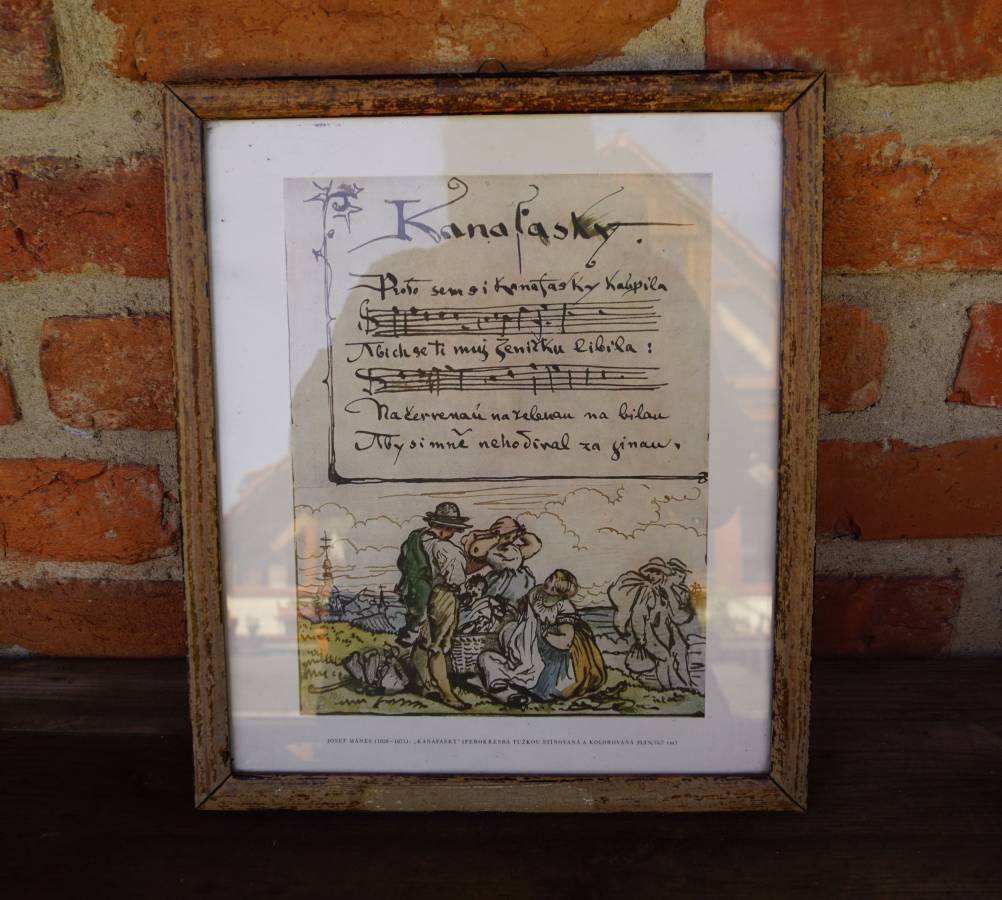 Kanafasky.
Proto sem si Kanafasky Kaupila
Abich se ti muj Ženičku libila :
Na červenaú na zelenau na bilau
Aby si mně nehodíval za ginau,
JOSEF MÁNES (1820—1871): „KANAFASKY“ (PEROKRESBA TUŽKOU STÍNOVANÁ A KOLOROVANÁ cm)